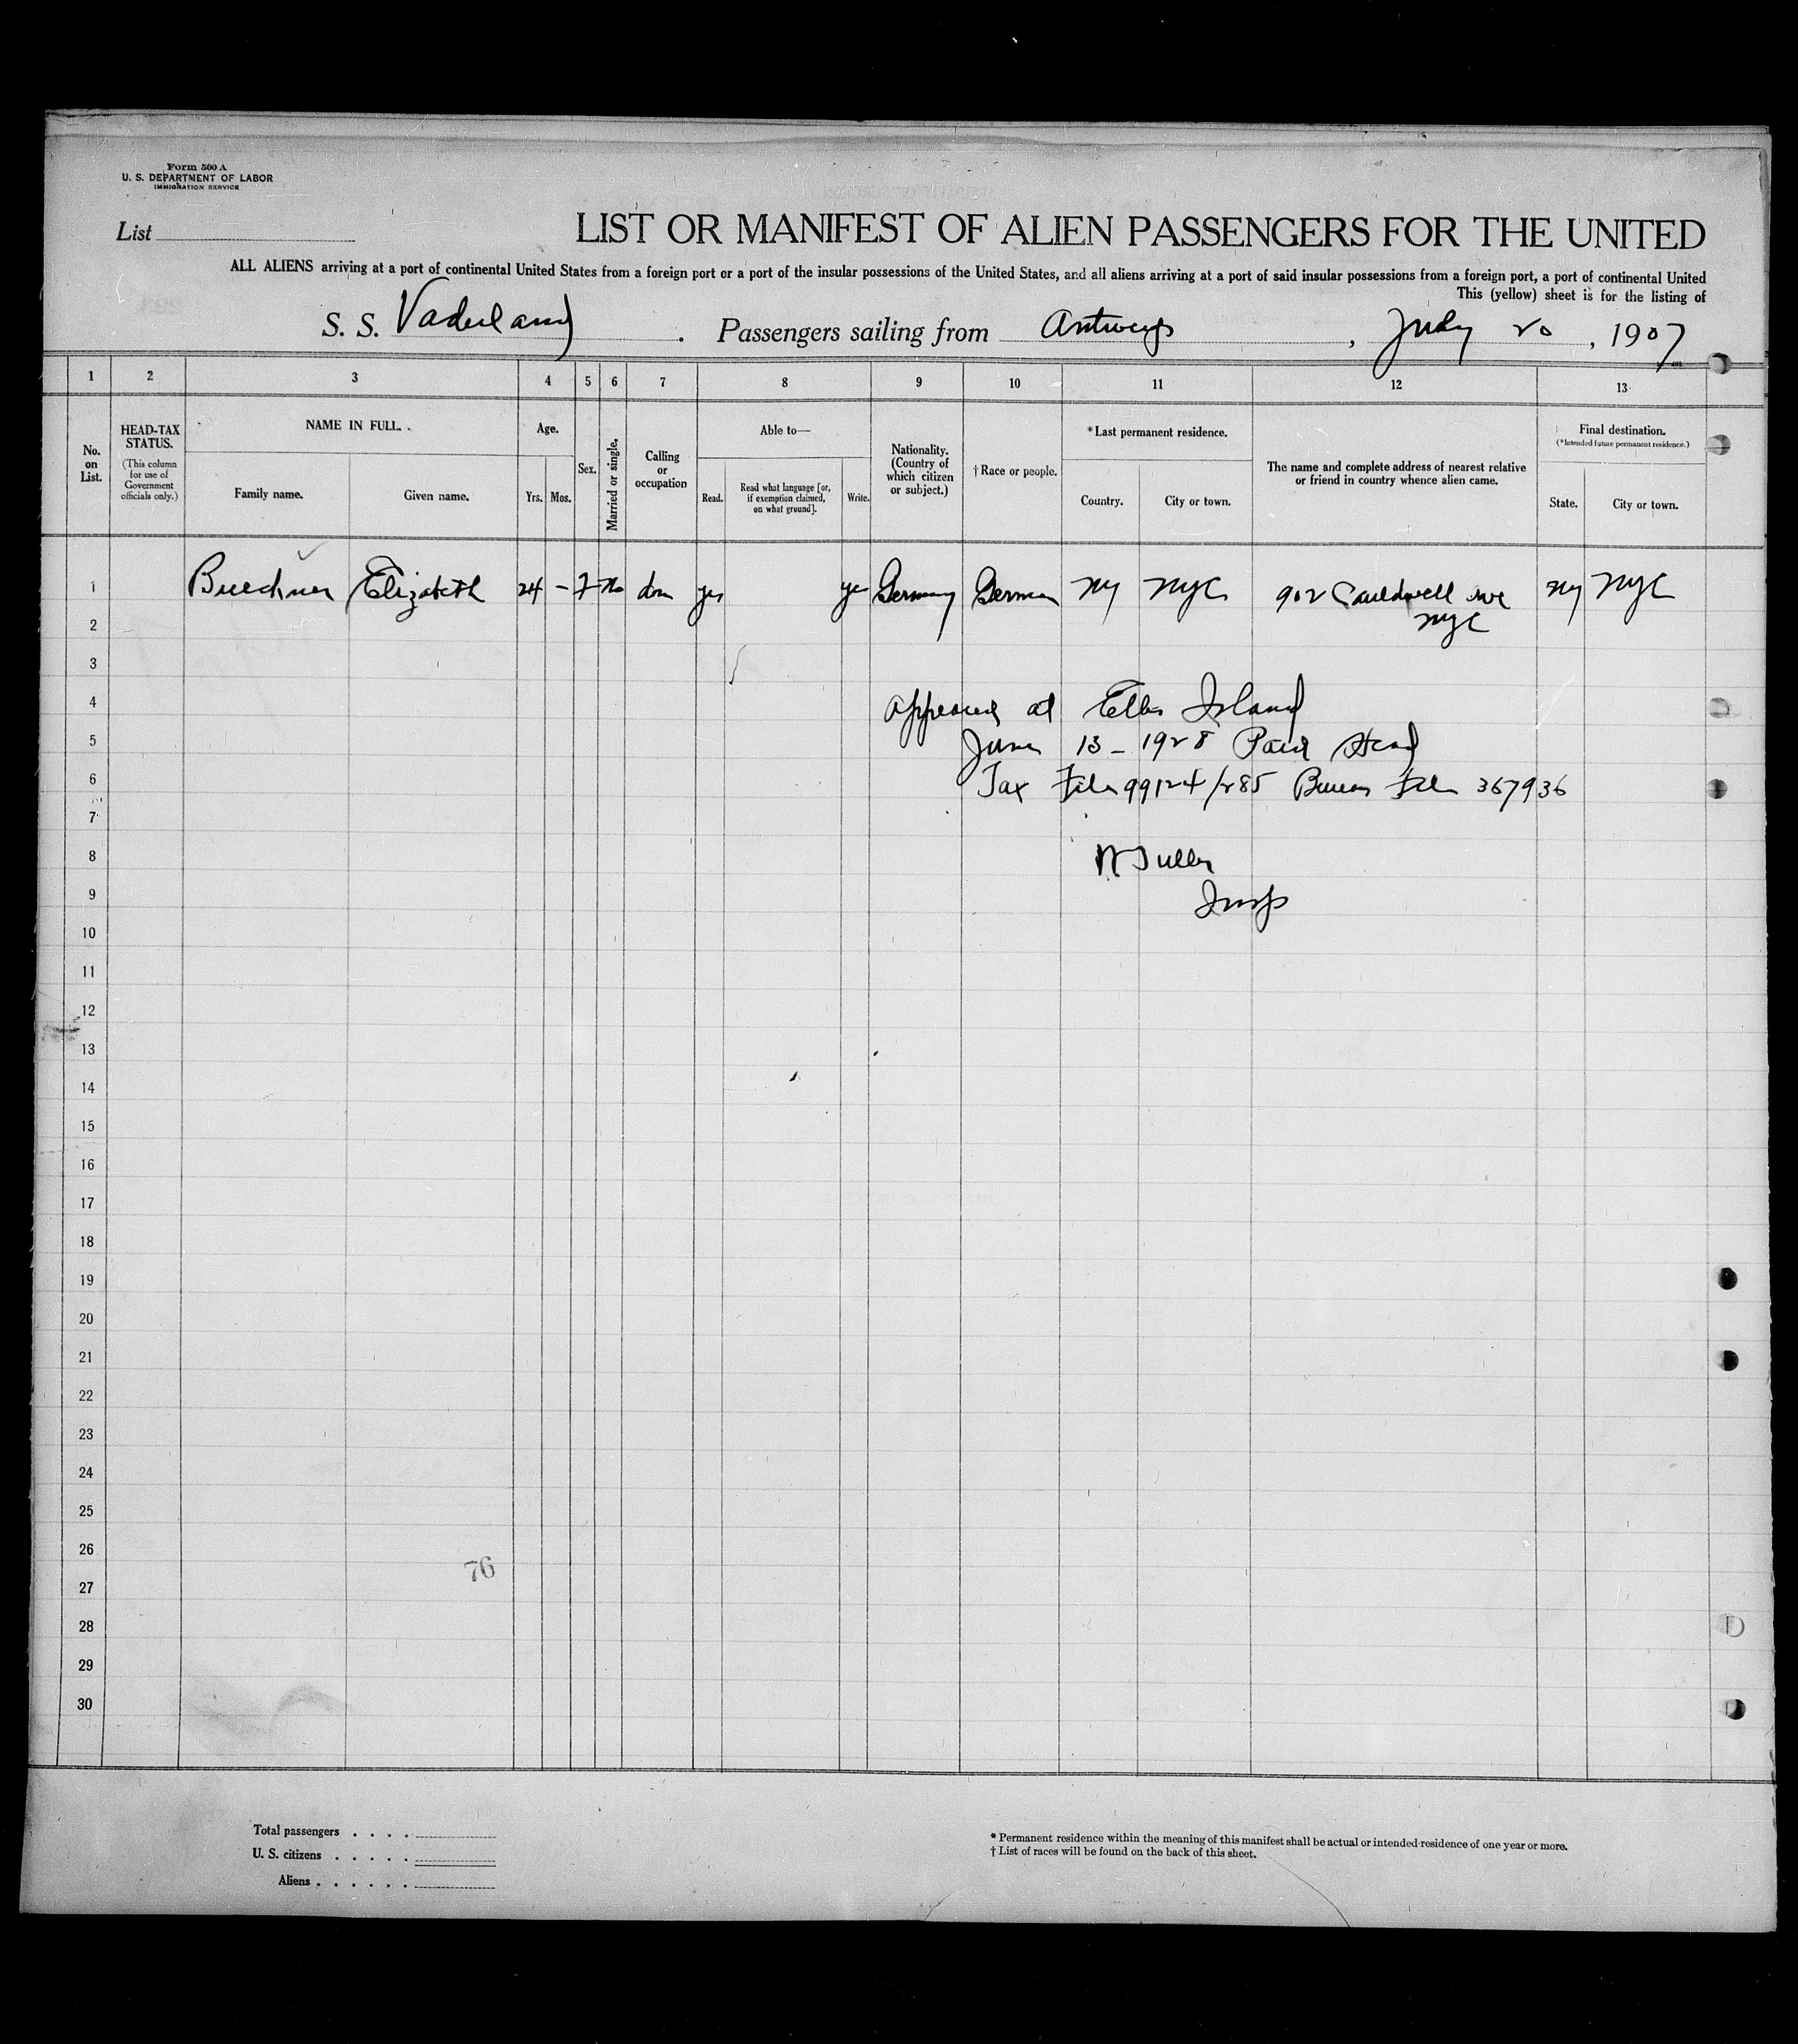 Form 500 A
U. S. DEPARTMENT OF LABOR
IMMIGRATION SERVICE
List
LIST OR MANIFEST OF ALIEN PASSENGERS FOR THE UNITED
ALL ALIENS arriving at a port of continental United States from a foreign port or a port of the insular possessions of the United States, and all aliens arriving at a port of said insular possessions from a foreign port, a port of continental United
This (yellow) sheet is for the listing of
S. S. Vaderland. Passengers sailing from Antwerp, July 20, 1907
1 2 3 4 5 6 7 8 9 10 11 12 13
No. on List.
HEAD-TAX STATUS.
(This column for use of Government officials only.)
NAME IN FULL.
Family name.
Given name.
Age.
Yrs.
Mos.
Sex.
Married or single.
Calling or occupation
Able to—
Read.
Read what language [or, if exemption claimed, on what ground].
Write.
Nationality. (Country of which citizen or subject.)
† Race or people.
*Last permanent residence.
Country.
City or town.
The name and complete address of nearest relative or friend in country whence alien came.
Final destination.
(*Intended future permanent residence.)
State.
City or town.
1 Buechner Elizabeth 24 – F dom yes yes Germany German NY NYC 902 Cauldwell Ave NY NYC
2 NYC
3
4 appeared at Ellis Island
5 June 13 – 1928 Paid Head
6 Tax File 99124/285 Bureau File 367936
7
8
9 Insp
10
11
12
13
14
15
16
17
18
19
20
21
22
23
24
25
26
76
27
28
29
30
Total passengers . . . .
U. S. citizens . . . . .
Aliens . . . . . .
* Permanent residence within the meaning of this manifest shall be actual or intended residence of one year or more.
† List of races will be found on the back of this sheet.